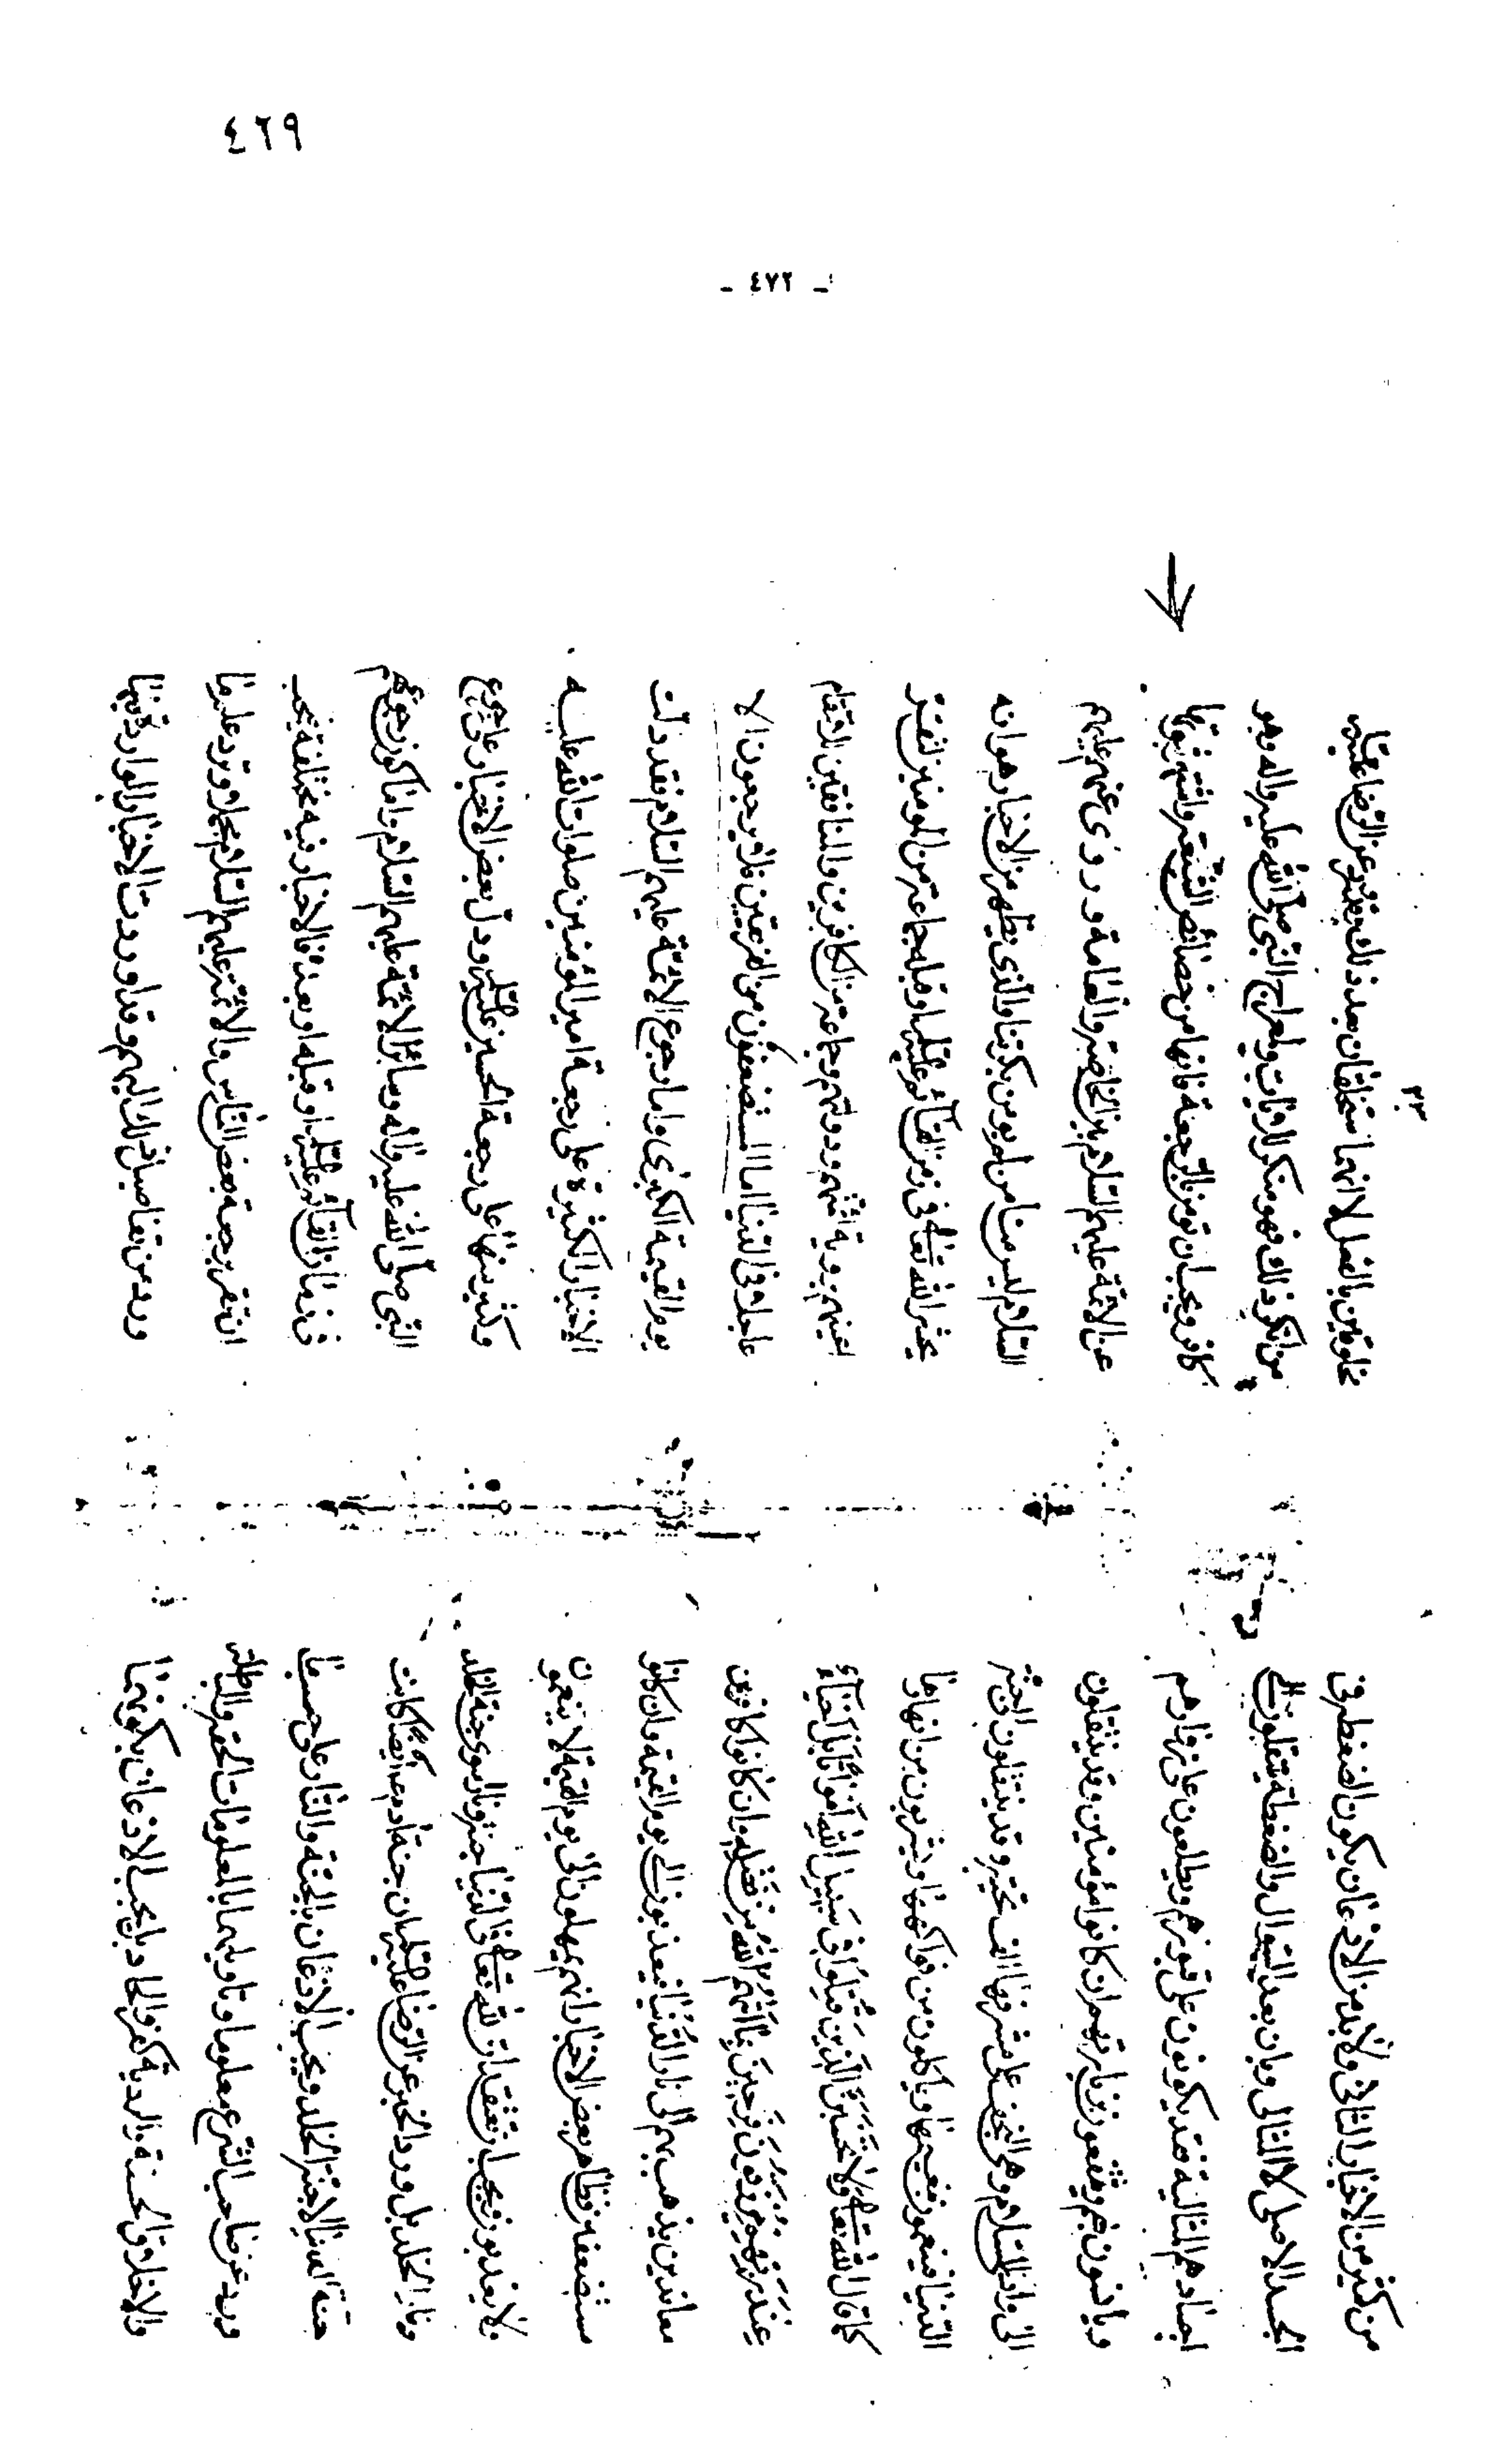 ٤٦٩
- ٤٧٢ -
من كثير من الاخبار بالثانى ولابد من الاذعان بكون الضغطة فى
الجسد الاصلى لا المثالى وبان بعد السؤال والضغطة ينتقلون الى
اجسادهم المثالية فقد يكونون على قبورهم ويطلعون على زوارهم
ويانسون بهم وينتفعون بزيارتهم ان كانوا مؤمنين وقد ينتقلون
الى وادى السلام وهى النجف على مشرفها الف تحية وقد ينتقلون الى جنة
الدنيا فيتنعمون بنعيمها وياكلون من فواكهها ويشربون من انهارها
كما قال الله تعالى وَلا تَحْسَبَنَّ الَّذينَ قُتِلُوا فى سَبيلِ اللهِ اَمْواتاً بَلْ اَحْياءٌ
عِنْدَ رَبِّهِمْ يُرْزَقُونَ فَرِحينَ بِما آتيهُمُ اللهُ مِنْ فَضْلِهِ وان كانوا كافرين
معاندين يذهب بهم الى نار الدنيا فيعذبون الى يوم القيمة وان كانوا
مستضعفين فظاهر بعض الاخبار انهم يمهلون الى يوم القيمة لا يتنعمون
ولا يعذبون ويجب ان تعتقد ان لله تعالى فى الدنيا جنة ونارا سوى جنة الخلد
ونار الخلد بل ورد الخبر عن الرضا عليه السلام ان جنة آدم ع ايضا كانت
جنة الدنيا لا جنة الخلد ويجب الاذعان بالجنة والنار على حسب ما
ورد عن صاحب الشرع معلوما وتاويلهما بالمعلومات الحقة والباطلة
والاخلاق الحسنة والردية كفر والحاد بل يجب الاذعان بكونهما
٣٣
مخلوقين بالفعل لا انهما سيخلقان بعد ذلك فقد ورد عن الرضا عليه السلام
من انكر ذلك فهو منكر للآيات ولمعراج النبى صلى الله عليه واله وهو
كافر ويجب ان تؤمن بالرجعة فانها من خصائص الشيعة واشتهر ثبوتها
عن الائمة عليهم السلام بين الخاصة والعامة وروى عنهم عليهم
السلام ليس منا من لم يؤمن بكرتنا والذى يظهر من الاخبار هو انه
يحشر الله تعالى فى زمن القائم عليه السلام او قبله جماعة من المؤمنين لتقر
اعينهم برؤية ائمتهم ودولتهم وجماعة من الكافرين والمنافقين لانتقام
عاجلا فى الدنيا اما المستضعفون من الفرقتين فلا يرجعون الا
يوم القيمة الكبرى واما رجوع الائمة عليهم السلام فقد دلت
الاخبار الكثيرة على رجعة امير المؤمنين صلوات الله عليه
وكثير منها على رجعة الحسين عليه السلام ودل بعض الاخبار على رجوع
النبى صلى الله عليه واله وسائر الائمة عليهم السلام واما كون رجوعهم
فى زمان القائم عليه السلام او قبله او بعده فالاخبار فيه مختلفة فيجب
ان تقر برجعة بعض الناس والائمة عليهم السلام مجملا وترد علم ما
ورد من تفاصيل ذلك اليهم وقد اوردت الاخبار الواردة فيها